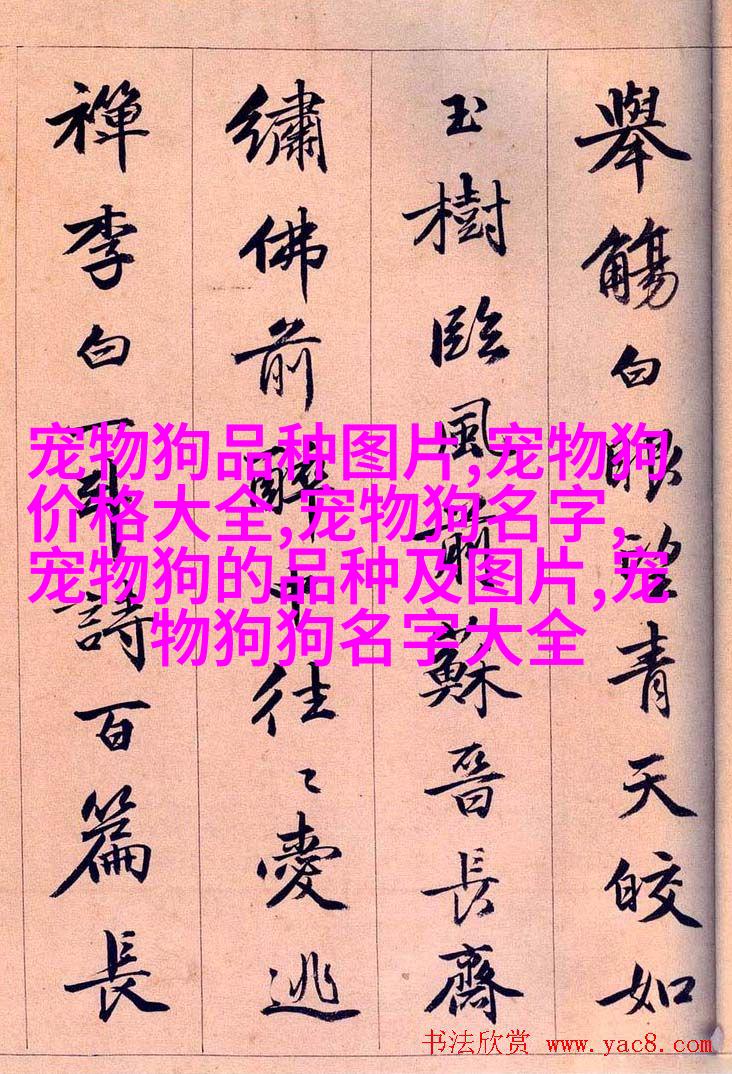 舉觴白眼望青天皎如
玉樹臨風前蘇晉長齋
繡佛前醉中往〻愛逃
禪李白一斗詩百篇長
宠物狗品种图片,宠物狗
价格大全,宠物狗名字,
宠物狗的品种及图片,宠
物狗狗名字大全
书法欣赏 www.yac8.com